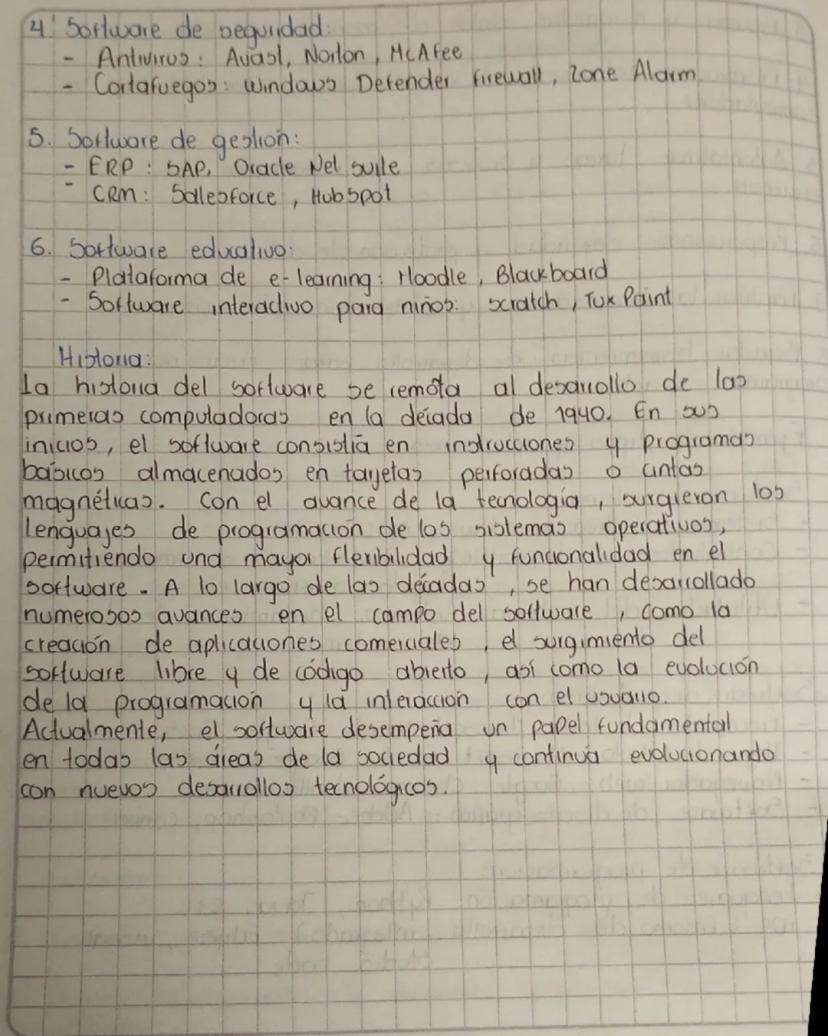 4. Software de seguridad
- Antivirus: Avast, Norton, McAfee
- Cortafuegos: Windows Defender firewall, Zone Alarm
5. Software de gestion:
- ERP: SAP, Oracle Net suite
- CRM: Salesforce, HubSpot
6. Software educativo:
- Plataforma de e-learning: Moodle, Blackboard
- Software interactivo para niños: scratch, Tux Paint
Historia:
La historia del software se remota al desarrollo de las
primeras computadoras en la década de 1940. En sus
inicios, el software consistía en instrucciones y programas
básicos almacenados en tarjetas perforadas o cintas
magnéticas. Con el avance de la tecnología, surgieron los
lenguajes de programación de los sistemas operativos,
permitiendo una mayor flexibilidad y funcionalidad en el
software. A lo largo de las décadas, se han desarrollado
numerosos avances en el campo del software, como la
creación de aplicaciones comerciales, el surgimiento del
software libre y de código abierto, así como la evolución
de la programación y la interacción con el usuario.
Actualmente, el software desempeña un papel fundamental
en todas las áreas de la sociedad y continúa evolucionando
con nuevos desarrollos tecnológicos.